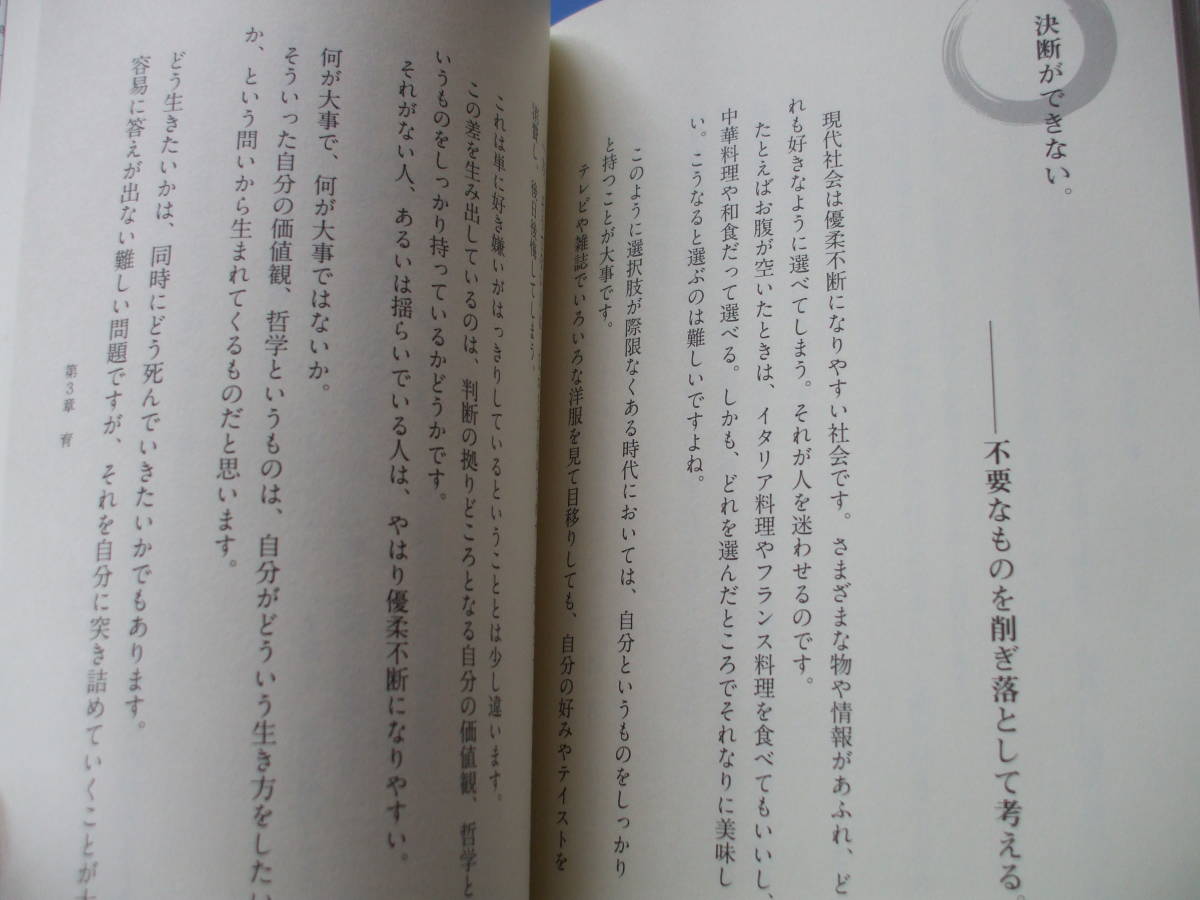 決断ができない。
――不要なものを削ぎ落として考える。
現代社会は優柔不断になりやすい社会です。さまざまな物や情報があふれ、ど
れも好きなように選べてしまう。それが人を迷わせるのです。
たとえばお腹が空いたときは、イタリア料理やフランス料理を食べてもいいし、
中華料理や和食だって選べる。しかも、どれを選んだところでそれなりに美味し
い。こうなると選ぶのは難しいですよね。
このように選択肢が際限なくある時代においては、自分というものをしっかり
と持つことが大事です。
テレビや雑誌でいろいろな洋服を見て目移りしても、自分の好みやテイストを
し、後日後悔してしまう。
これは単に好き嫌いがはっきりしているということとは少し違います。
この差を生み出しているのは、判断の拠りどころとなる自分の価値観、哲学と
いうものをしっかり持っているかどうかです。
それがない人、あるいは揺らいでいる人は、やはり優柔不断になりやすい。
何が大事で、何が大事ではないか。
そういった自分の価値観、哲学というものは、自分がどういう生き方をしたい
か、という問いから生まれてくるものだと思います。
どう生きたいかは、同時にどう死んでいきたいかでもあります。
容易に答えが出ない難しい問題ですが、それを自分に突き詰めていくことが
第3章 育